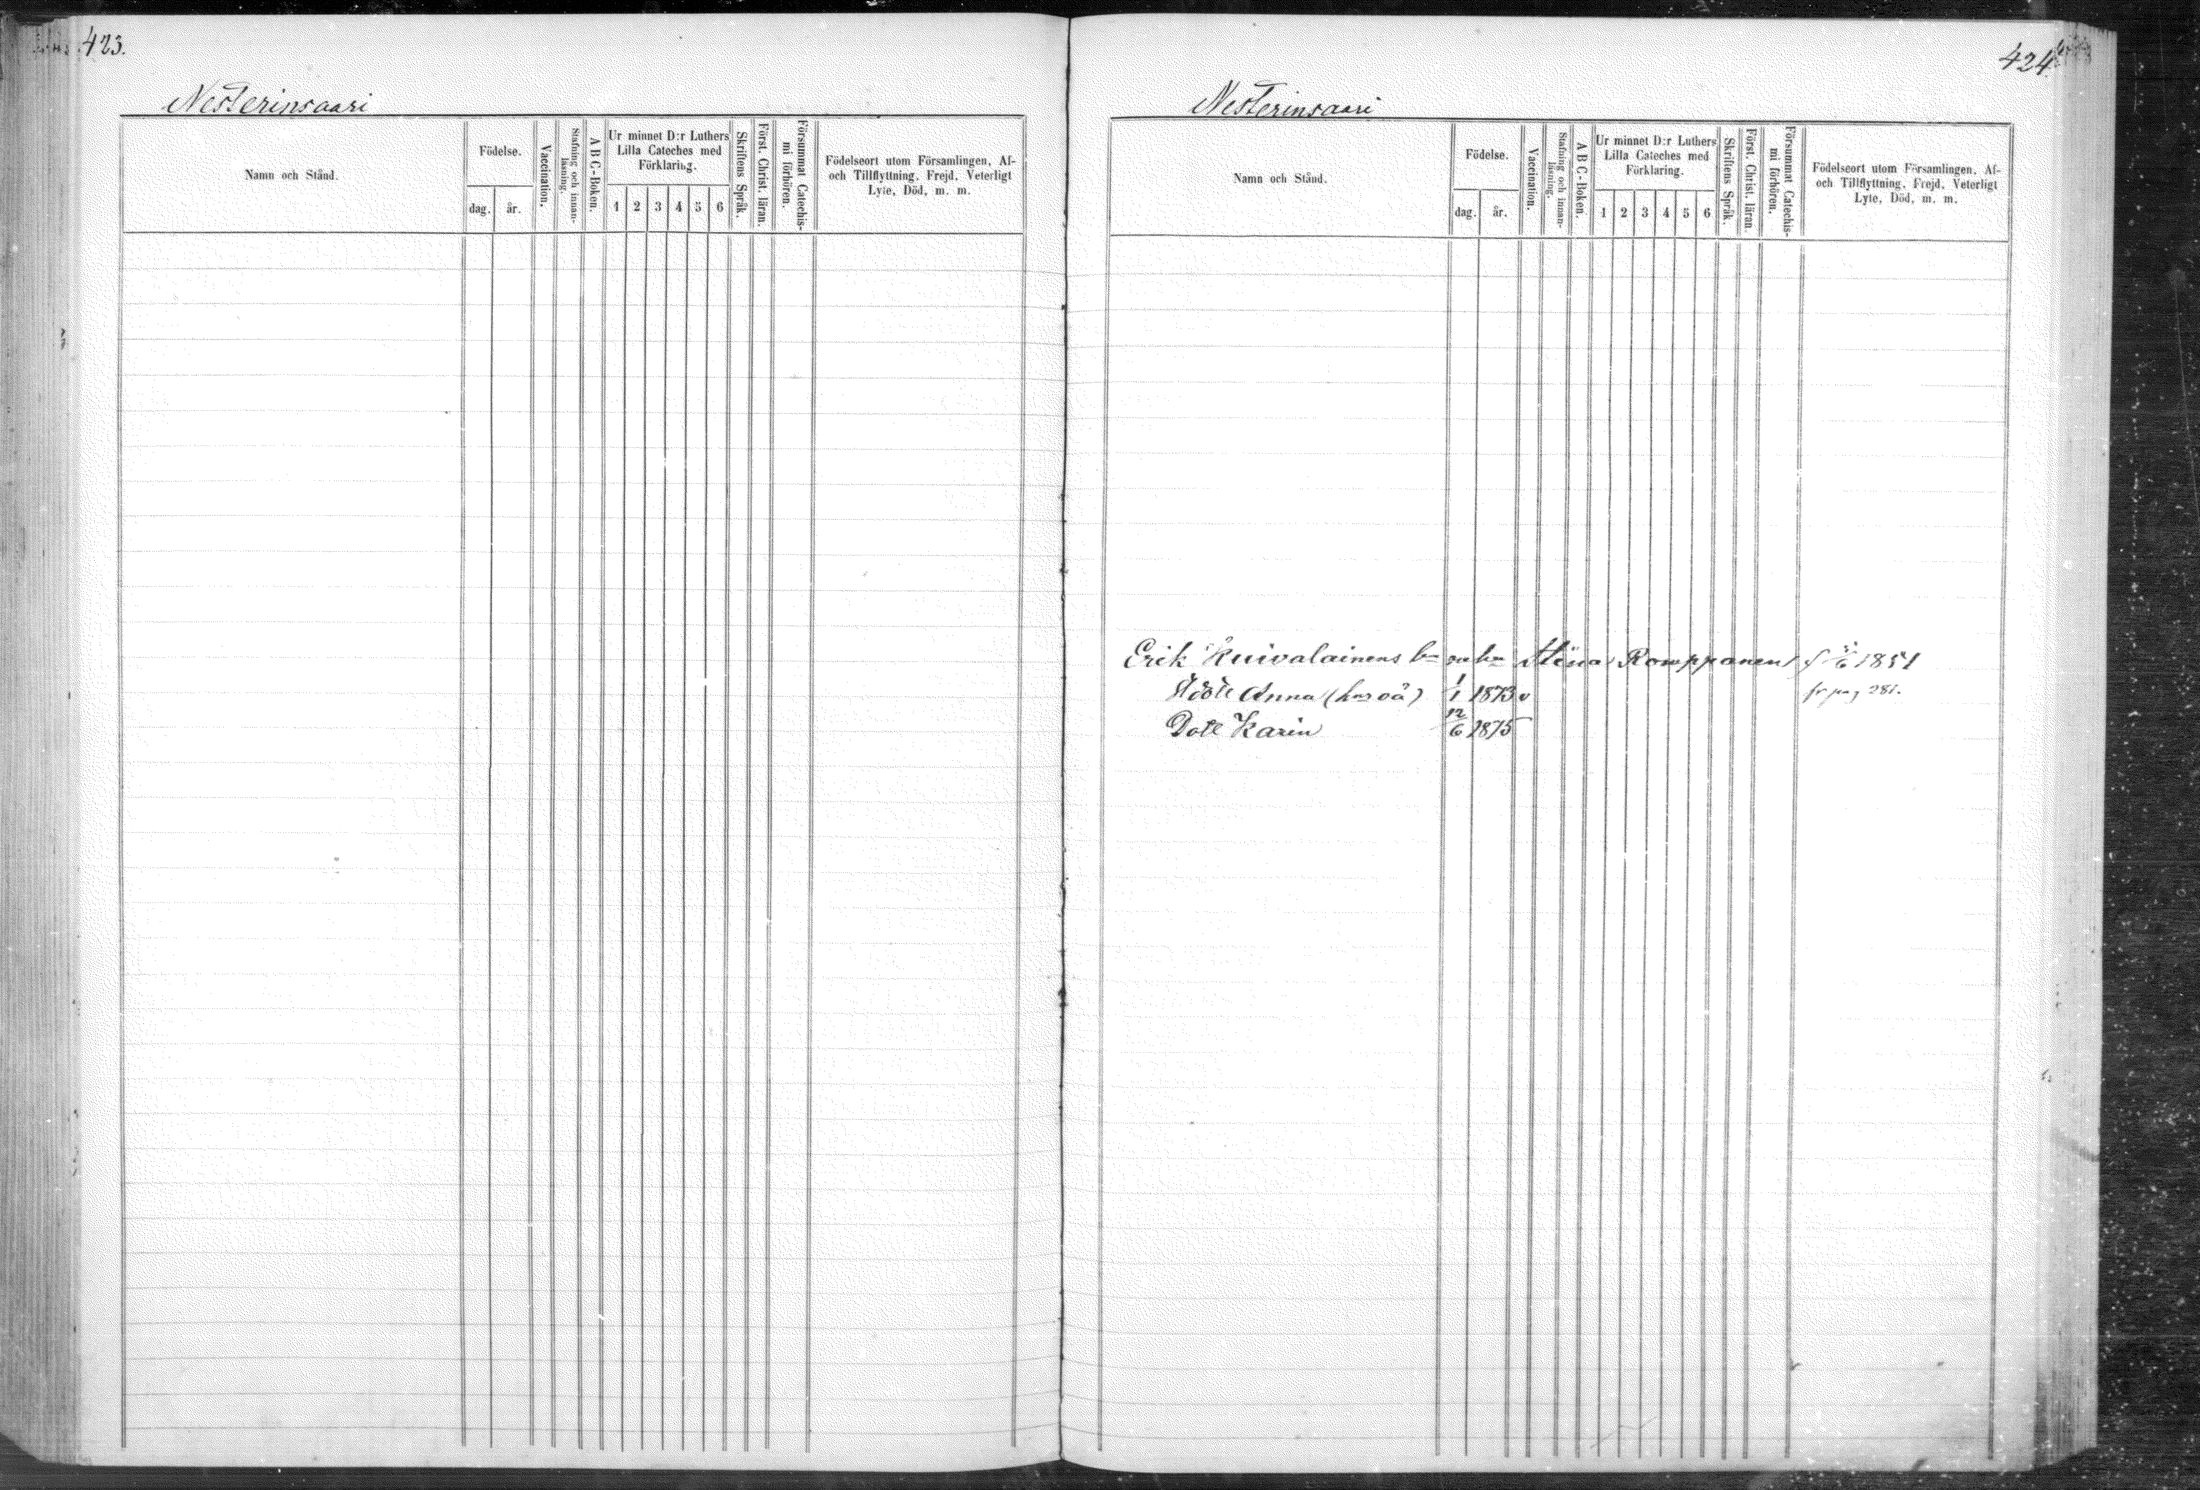 423.
Nesterinsaari
Namn och Stånd.
Födelse.
dag.
år.
Vaccination.
Stafning och innanläsning.
A B C-Boken.
Ur minnet D:r Luthers
Lilla Cateches med
Förklaring.
1 2 3 4 5 6
Skriftens Språk.
Först. Christ. läran.
Försummat Catechis-
mi förhören.
Födelseort utom Församlingen, Af-
och Tillflyttning, Frejd, Veterligt
Lyte, Död, m. m.
424
Nesterinsaari
Namn och Stånd.
Födelse.
dag.
år.
Vaccination.
Stafning och innan-
läsning.
A B C-Boken.
Ur minnet D:r Luthers
Lilla Cateches med
Förklaring.
1 2 3 4 5 6
Skriftens Språk.
Först. Christ. läran.
Försummat Catechis-
mi förhören.
Födelseort utom Församlingen, Af-
och Tillflyttning, Frejd, Veterligt
Lyte, Död, m. m.
Erik Kuivalainens Stina Romppanen 1851
Anna 1/1 1873 v fr pag 281.
Dotr Karin 12/6 1875